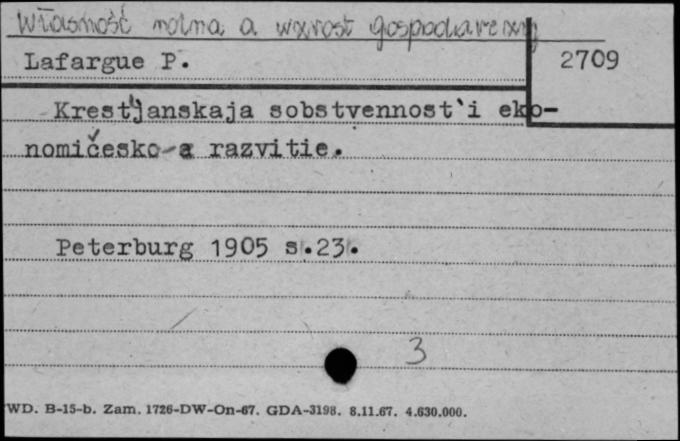 Własność rolna a wzrost gospodarczy
Lafargue P.
2709
Krest'janskaja sobstvennost'i eko-
nomičesko-e razvitie.
Peterburg 1905 s.23.
3
WD. B-15-b. Zam. 1726-DW-On-67. GDA-3198. 8.11.67. 4.630.000.